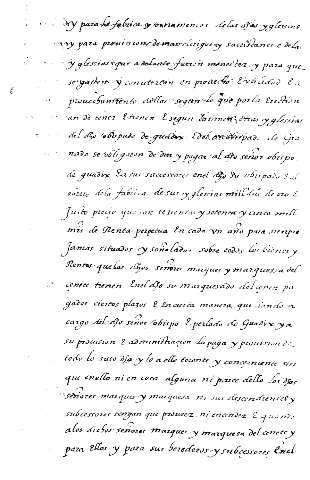 y para la fabrica y ornamentos de las dhas yglesias
y para provision de mas clerigos y sacristanes e de la
yglesias que adelante fueren menester y para que
se gasten y conviertan en provecho E utilidad E a
provechamiento dellas segun lo que por la Erection
an de tener E tienen E segun tienen las otras yglesias
del dho obispado de guadix E del arzobispado de Gra
nada se obligaron de dar y pagar al dho señor obispo
de guadix E a sus sucesores en el dho su obispado E al
de la fabrica de sus yglesias mill
Justo precio que son sesenta y setenta y cinco mill
mrs de Renta perpetua En cada un año para siempre
jamas situados y señalados sobre todos los bienes y
Rentas que los dhos señores marques y marquesa del
cenete tienen En el dho su marquesado del cenete pa
gados ciertos plazos E en cierta manera que siendo a
cargo del dho señor obispo E perlado de Guadix y a
su provision E administracion la paga y provision de
todo lo suso dho y lo a ello tocante y conveniente sin
que en ello ni en cosa alguna ni parte dello los dhos
señores marques y marquesa ni sus descendientes y
subcesores tengan que proveer ni entender E quando
a los dichos señores marques y marquesa del cenete y
para Ellos y para sus herederos y subcesores En el